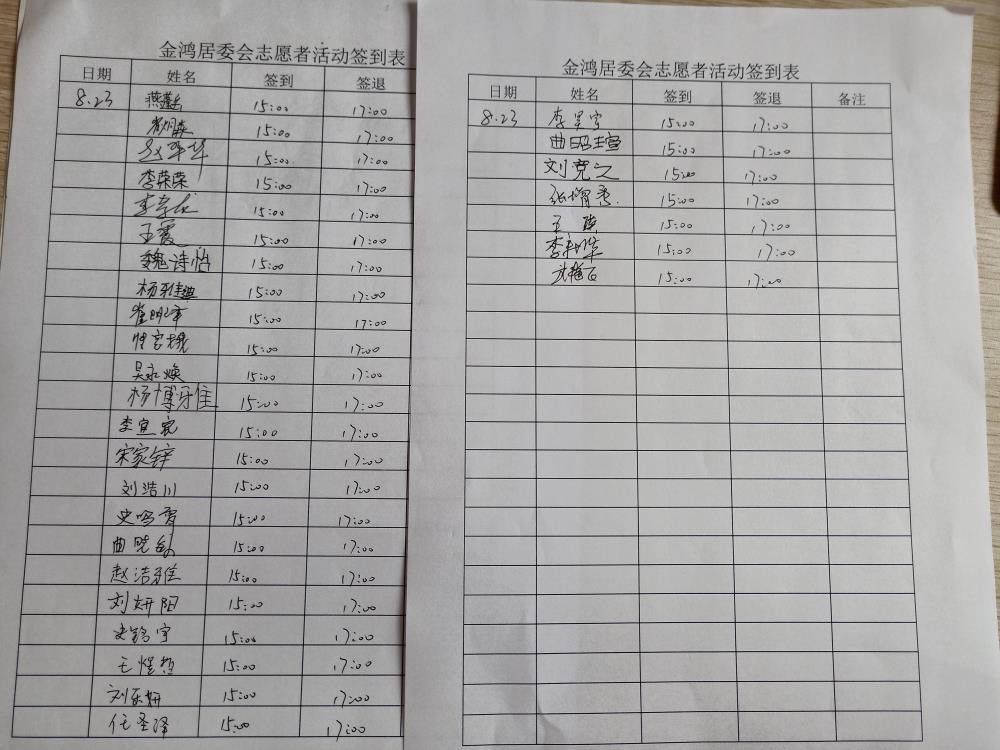 金鸿居委会志愿者活动签到表
日期 姓名 签到 签退
8.23 15:00 17:00
15:00 17:00
15:00 17:00
李荣荣 15:00 17:00
15:00 17:00
王霞 15:00 17:00
魏诗怡 15:00 17:00
杨雅迪 15:00 17:00
崔明军 15:00 17:00
15:00 17:00
吴永焕 15:00 17:00
杨博雅 15:00 17:00
李宜宸 15:00 17:00
宋家锌 15:00 17:00
刘浩川 15:00 17:00
史鸣 15:00 17:00
曲晓 15:00 17:00
赵洁雅 15:00 17:00
刘妍阳 15:00 17:00
史铭宇 15:00 17:00
王煜哲 15:00 17:00
刘乐妍 15:00 17:00
任圣泽 15:00 17:00
金鸿居委会志愿者活动签到表
日期 姓名 签到 签退 备注
8.23 李昊宇 15:00 17:00
曲昭瑄 15:00 17:00
刘竞之 15:00 17:00
张增秀 15:00 17:00
王 15:00 17:00
李 华 15:00 17:00
15:00 17:00